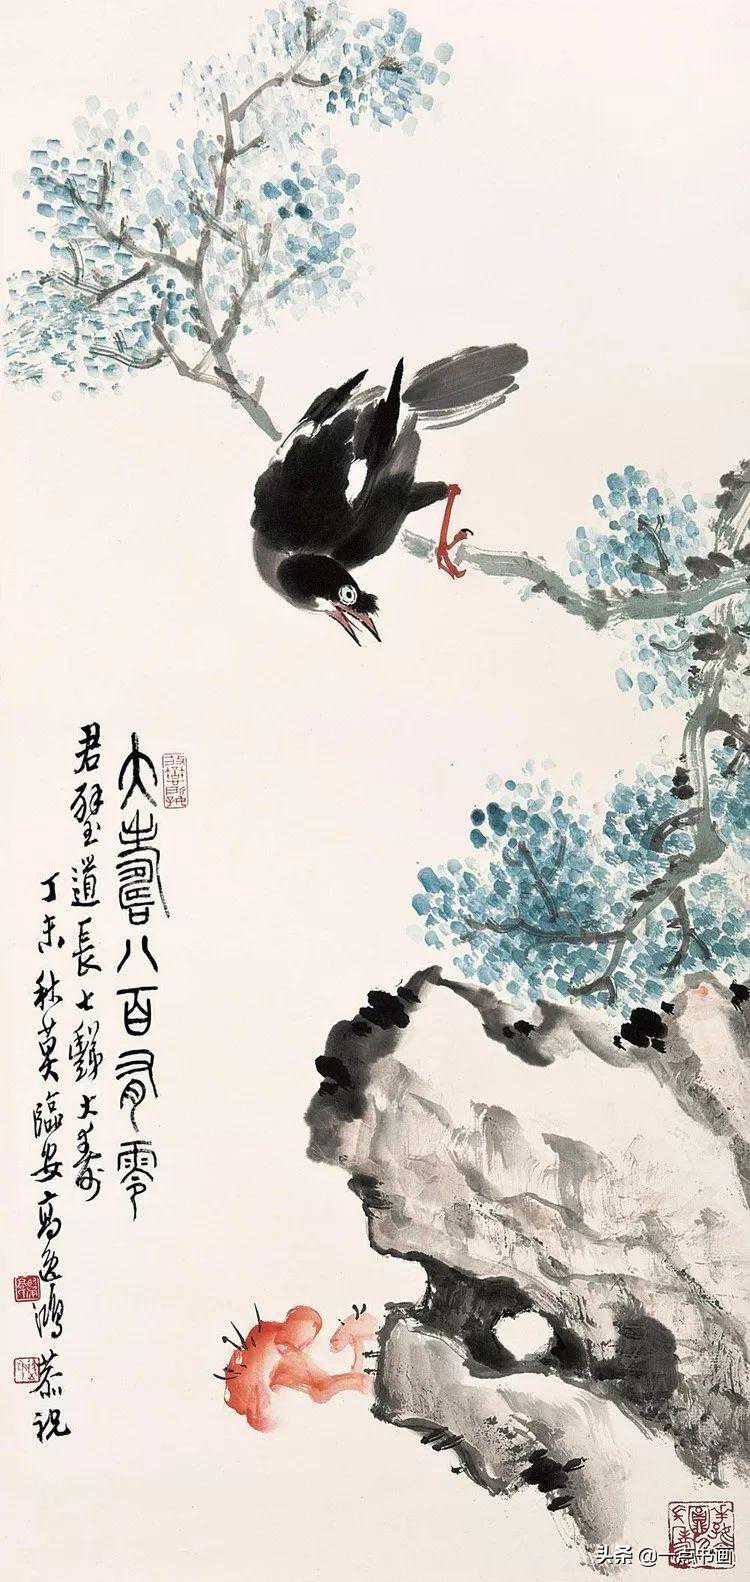 大壽八百有零
君璧道長七大壽
丁未秋莫臨安高逸鴻恭祝
头条 @一点书画